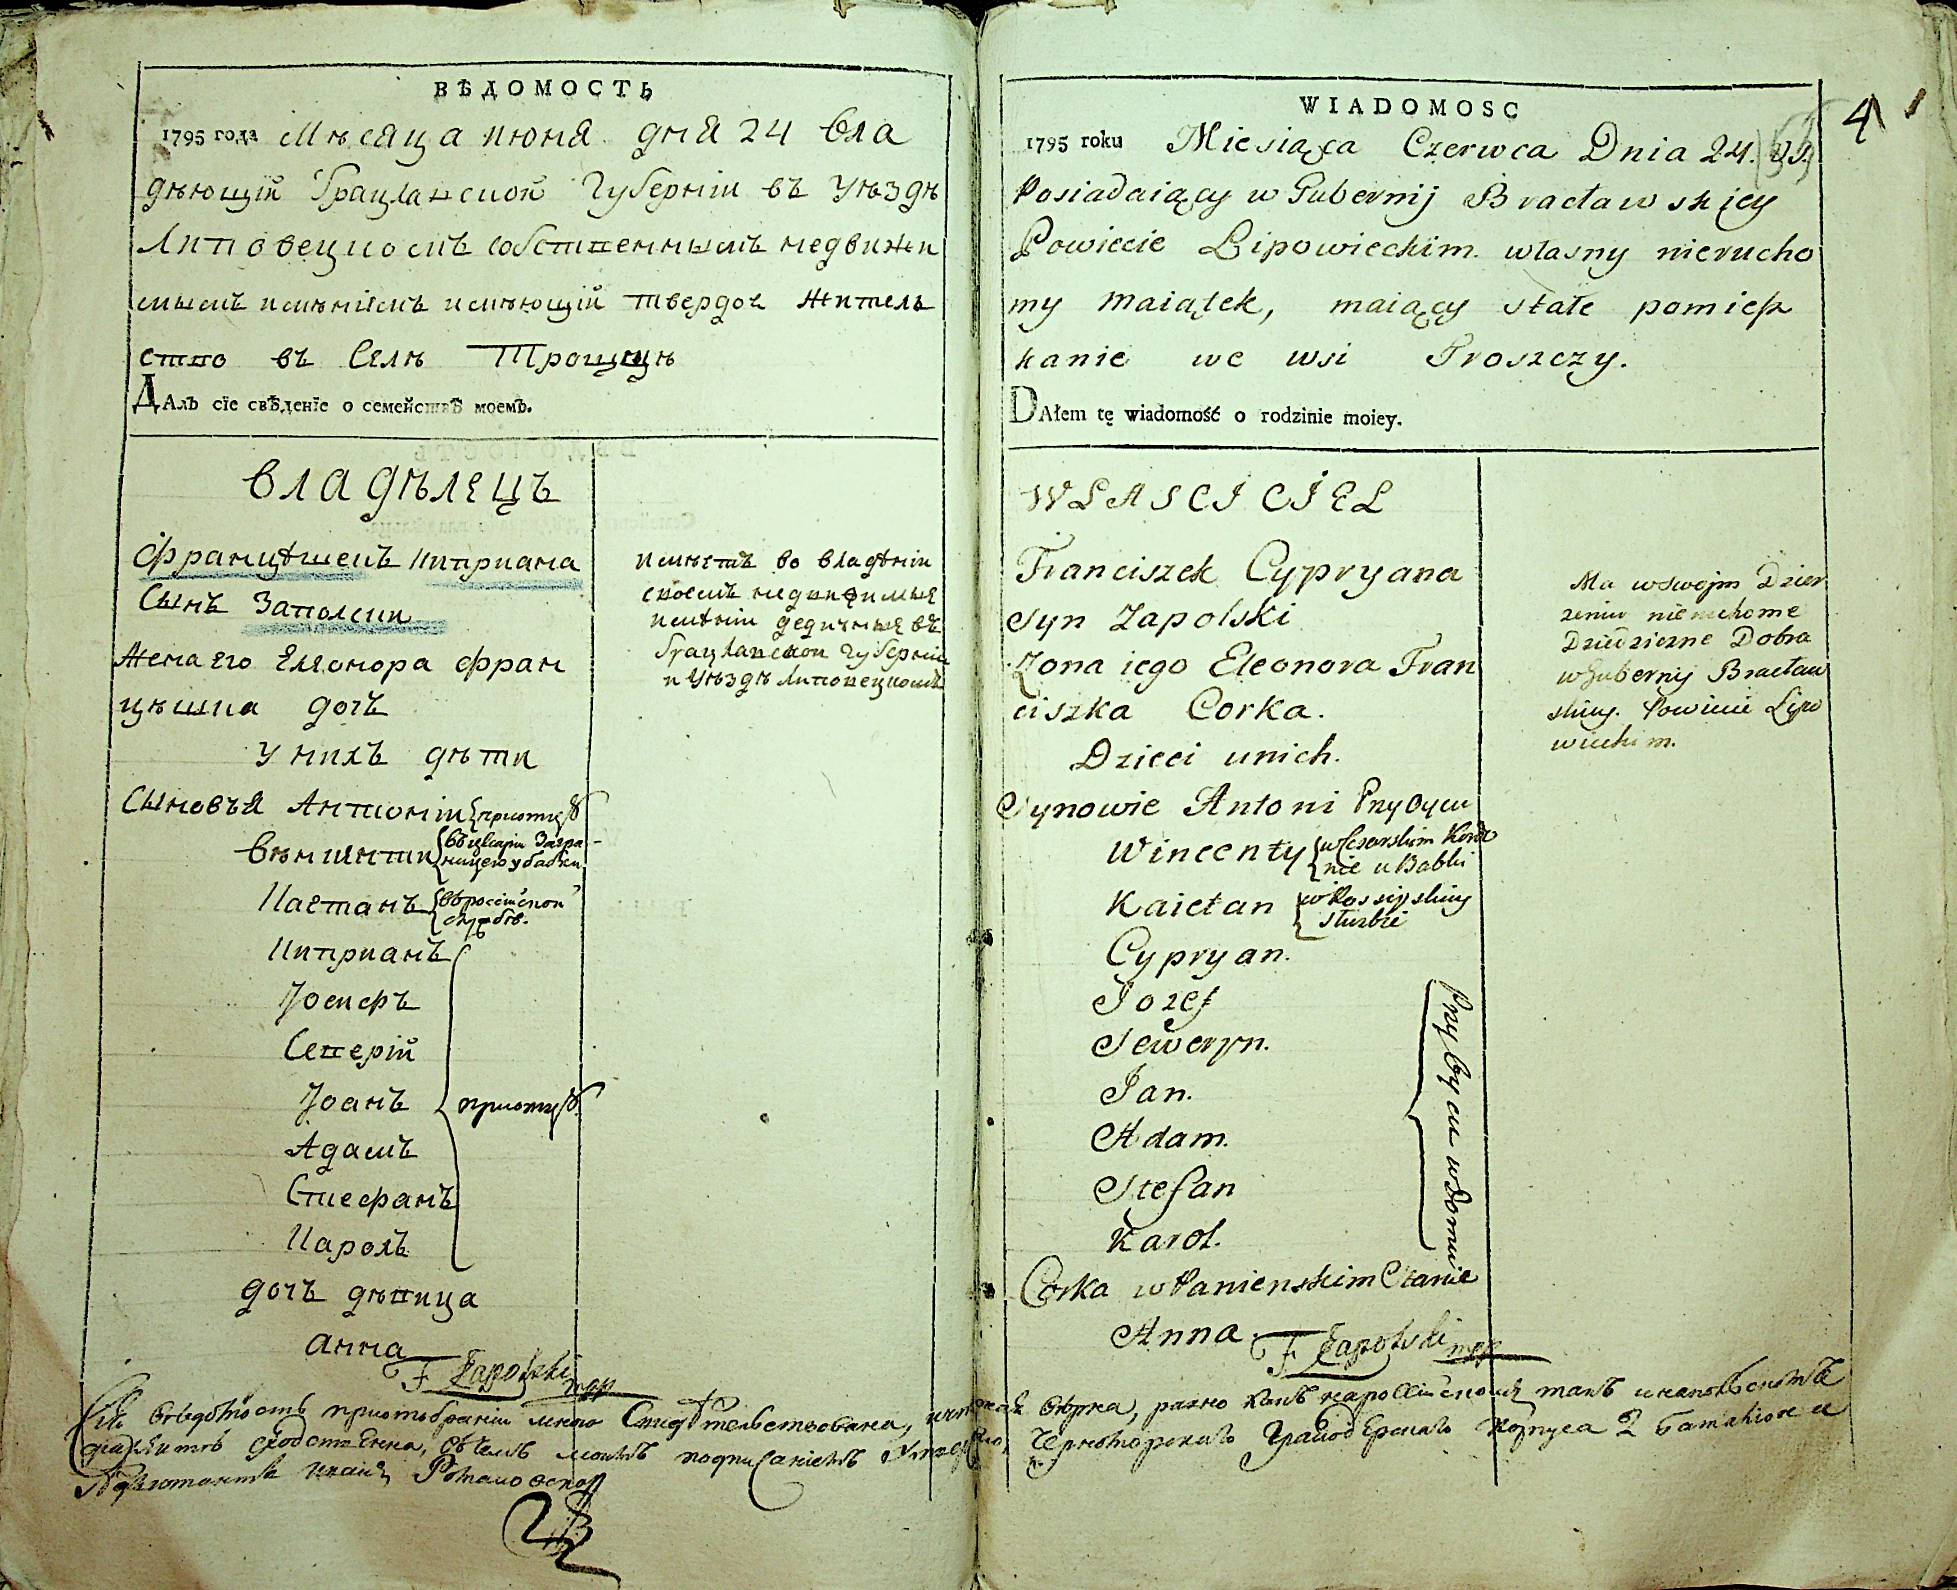 ВѢДОМОСТЬ
1795 года Мѣсяца июня дня 24 вла
дѣющій Брацлавской Губерніи въ уѣздѣ
Липовецкомъ собственнымъ недвижи
мымъ имѣніемъ имѣющій твердое жител
ство въ Селѣ Трощѣ
ДАлъ сїе свѣденїе о семействѣ моемъ.
владѣлецъ
Францѣшекъ Киприана
Сынъ Заполски
Жена его Елеонора Фран
цѣшка дочъ
у нихъ дѣти
Сыновъя Антоній {при отцѣ
Вѣнцѣнти {въ цесаріи Загра-
ницею у бабки
Каетанъ {въ россійской
службѣ.
Киприанъ
Іосифъ
Северій
Іоанъ
при отцѣ
Адамъ
Стефанъ
Кароль
дочъ дѣвица
анна
F Zapolski mpp
имѣетъ во владѣніи
своемъ недвижимыя
имѣніи дедичныя въ
Брацлавской Губерніи
и уѣздѣ Липовецкомъ
WIADOMOSC
4
1795 roku Miesiąca Czerwca Dnia 24.
Posiadaiący w Gubernij Bracławskiey
Powiecie Lipowieckim. własny nierucho
my maiątek, maiący stałe pomiesz
kanie we wsi Troszczy.
DAłem tę wiadomość o rodzinie moiey.
WŁASCICIEL
Franciszek Cypryana
Syn Zapolski
Zona iego Eleonora Fran
ciszka Corka.
Dzieci unich.
Synowie Antoni Przy Oycu
Wincenty {w Cesarskim Kordo
nie u Babki
Kaietan {w Rossiyskiey
służbie
Cypryan.
Jozef
Seweryn.
Jan.
Adam.
Stefan
Karol.
Przy Oycu w Domu
Corka w Panienskim Stanie
Anna.
F Zapolski mpp
Ma w Swojm Dzier
zeniu nieruchome
Dziedziczne Dobra
w Gubernij Bracław
skiey. Powiecie Lipo
wieckim.
Сія вѣдомость при отобраніи мною Свидѣтельствована,
вѣрна, равно какъ на россійскомъ такъ и на польскомъ
сходственна, въ чемъ моимъ подписаніемъ
Черноморскаго Гранодерскаго корпуса 2 баталіона
Адъютантъ